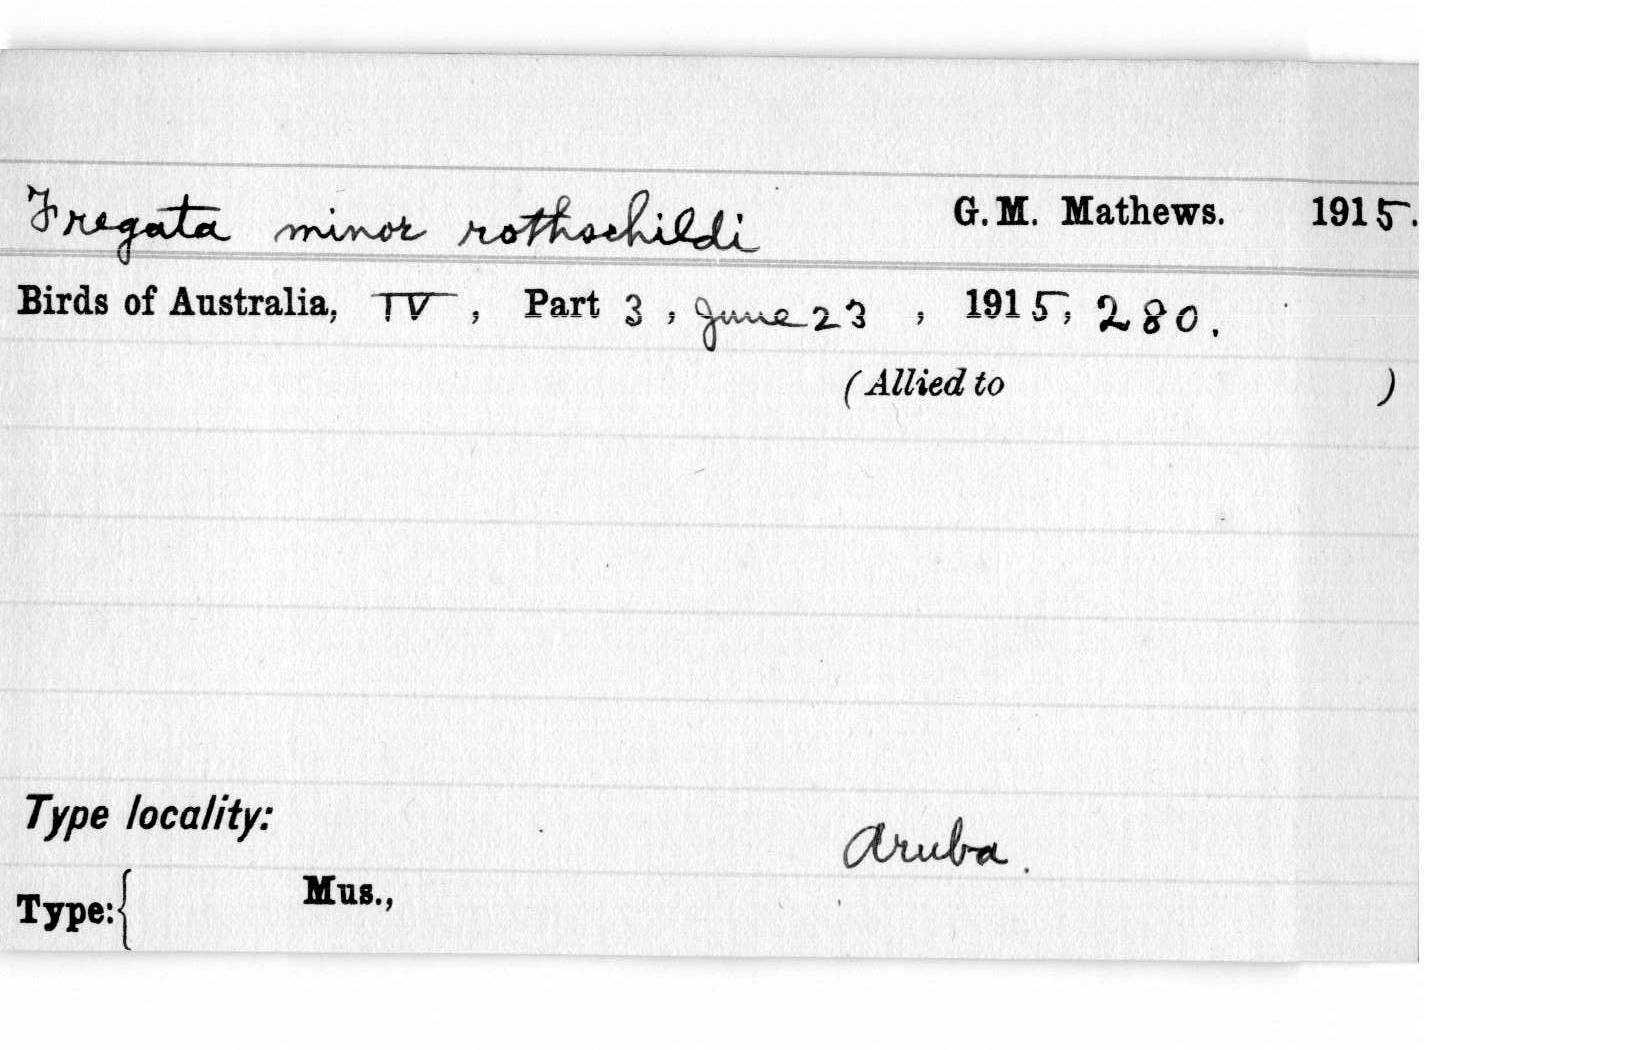 Fregata minor rothschildi G. M. Mathews. 1915.
Birds of Australia, IV, Part 3, June 23, 1915, 280.
(Allied to )
Type locality:
Aruba.
Type: { Mus.,